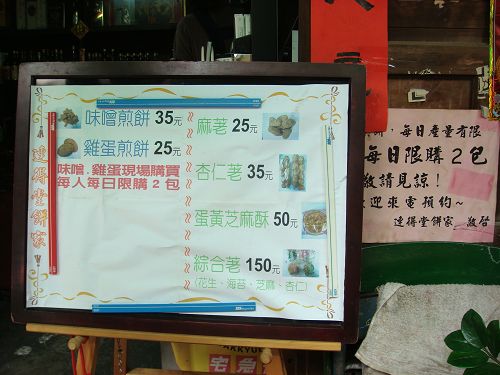 達得堂餅家
味噌煎餅 35元
雞蛋煎餅 25元
味噌.雞蛋現場購買
每人每日限購 2 包
麻荖 25元
杏仁荖 35元
蛋黃芝麻酥 50元
綜合荖 150元
(花生、海苔、芝麻、杏仁)
餅,每日產量有限
每日限購2包
敬請見諒!
歡迎來電預約~
達得堂餅家 敬啓
宅急